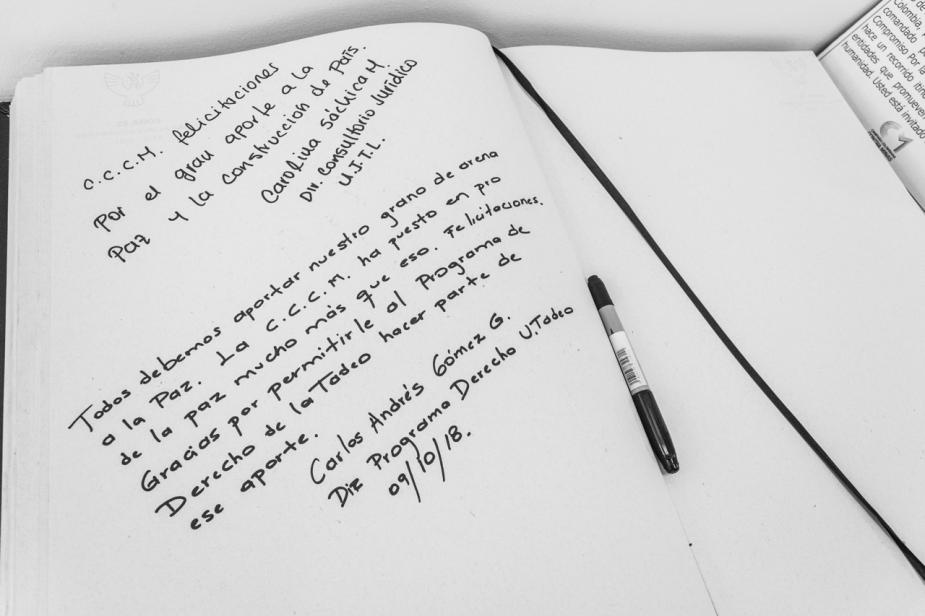 C.C.C.M. felicitaciones
por el gran aporte a la
Paz y la construcción de País.
Carolina Sáchica M.
Dir. Consultorio Jurídico
U.J.T.L.
Todos debemos aportar nuestro grano de arena
a la Paz. La C.C.C.M. ha puesto en pro
de la paz mucho más que eso. Felicitaciones.
Gracias por permitirle al Programa de
Derecho de la Tadeo hacer parte de
ese aporte.
Carlos Andrés Gómez G.
Dir Programa Derecho U.Tadeo
09/10/18.
Colombia,
comandado
Compromiso Por la
hace un recorrido
entidades que promueven
humanidad. Usted está invitado